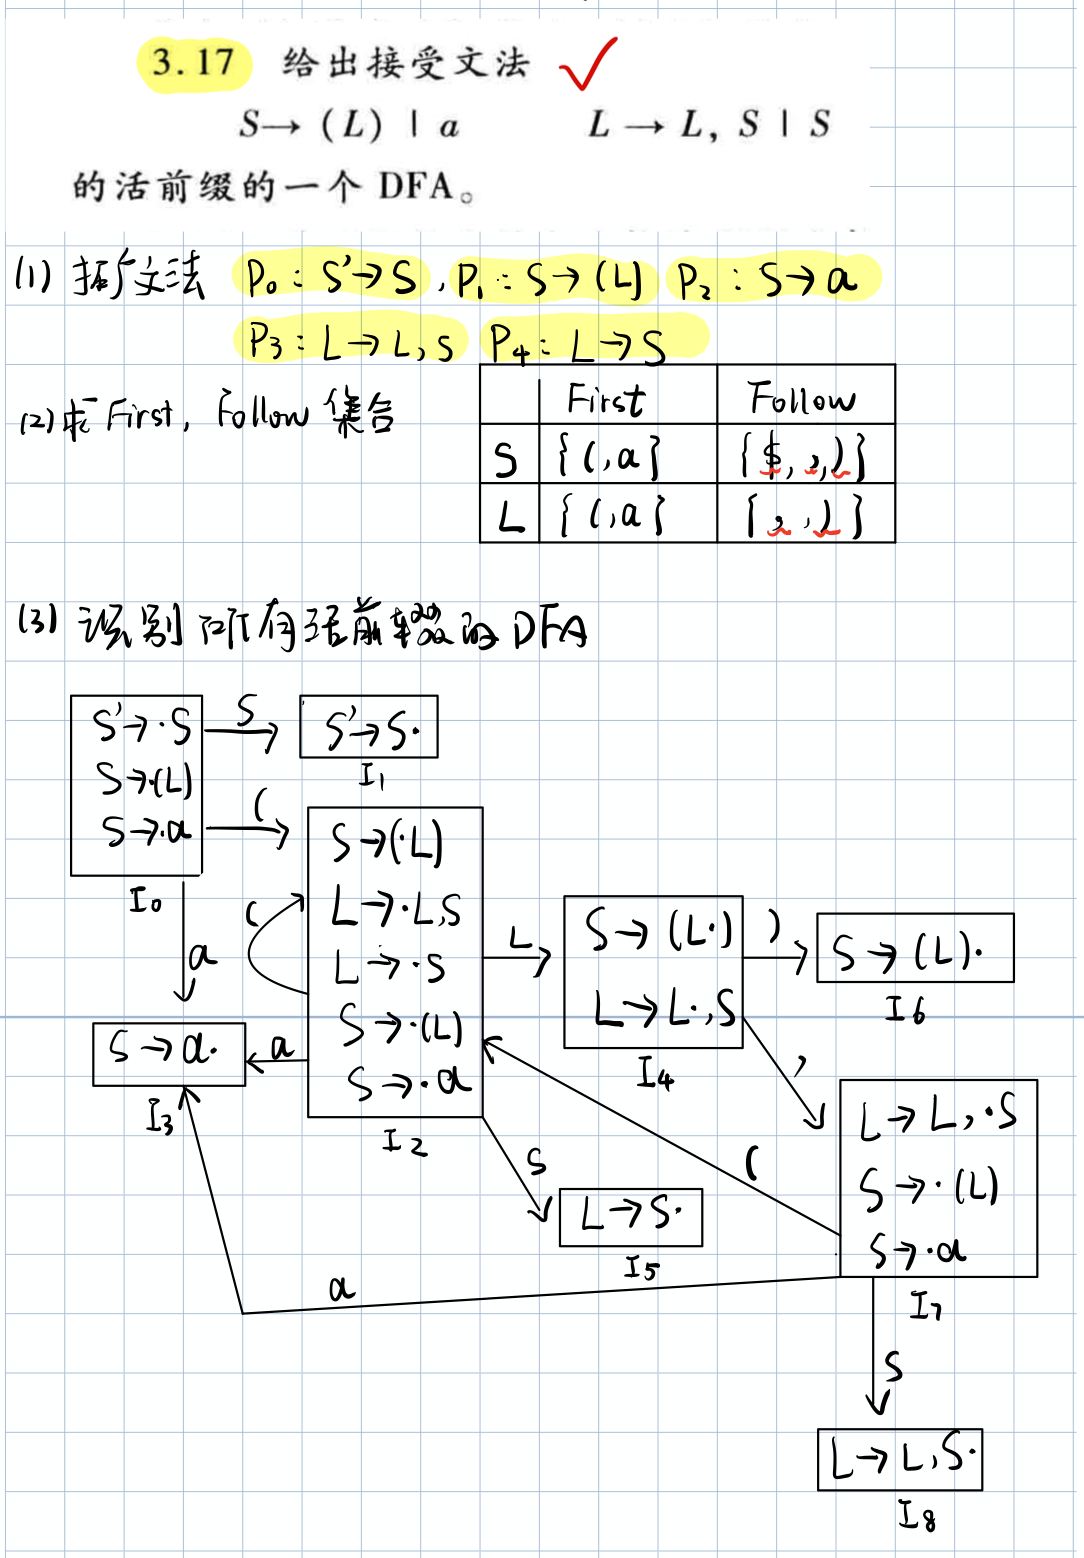 3.17 给出接受文法
S→ (L) | a L → L, S | S
的活前缀的一个 DFA。
(1) 拓广文法 P₀: S'→S, P₁: S→(L) P₂: S→a
P₃: L→L,S P₄: L→S
(2) 求 First, Follow 集合
First Follow
S {(,a} {$, ,,)}
L {(,a} {, ,)}
(3) 识别所有活前缀的 DFA
S'→·S
S→·(L)
S→·a
I₀
S
S'→S·
I₁
(
S→(·L)
L→·L,S
L→·S
S→·(L)
S→·a
I₂
(
a
S→a·
I₃
a
L
S→(L·)
L→L·,S
I₄
)
S→(L)·
I₆
,
L→L,·S
S→·(L)
S→·a
I₇
(
S
L→S·
I₅
a
S
L→L,S·
I₈